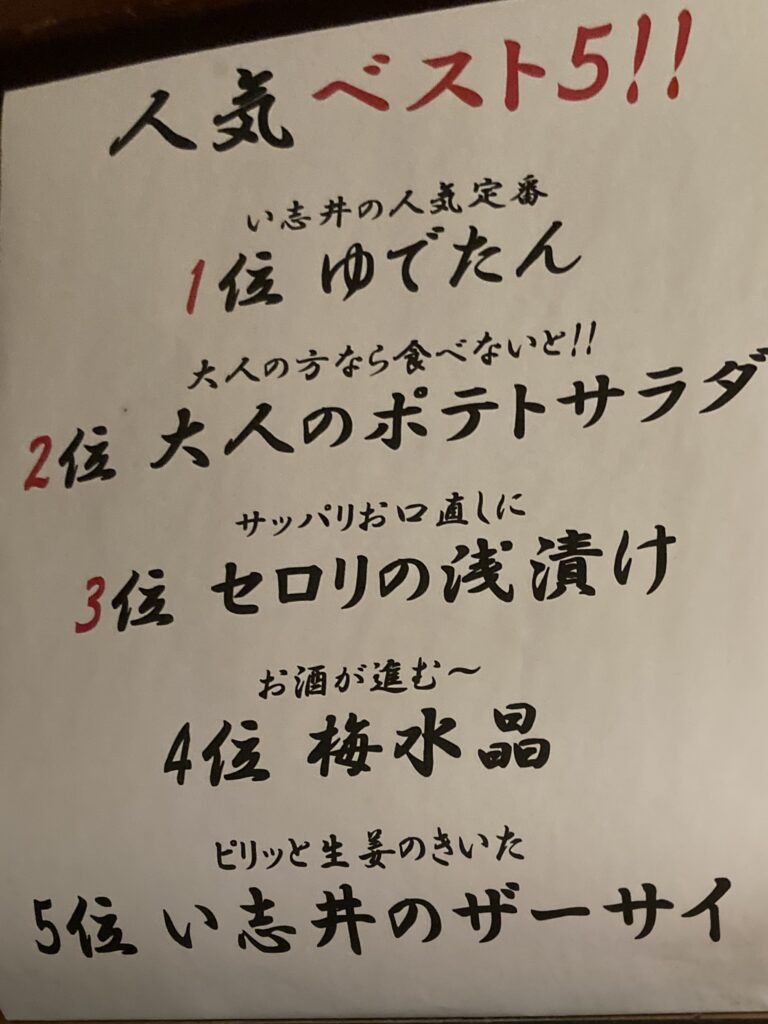 人気 ベスト5!!
い志井の人気定番
1位 ゆでたん
大人の方なら食べないと!!
2位 大人のポテトサラダ
サッパリお口直しに
3位 セロリの浅漬け
お酒が進む〜
4位 梅水晶
ピリッと生姜のきいた
5位 い志井のザーサイ